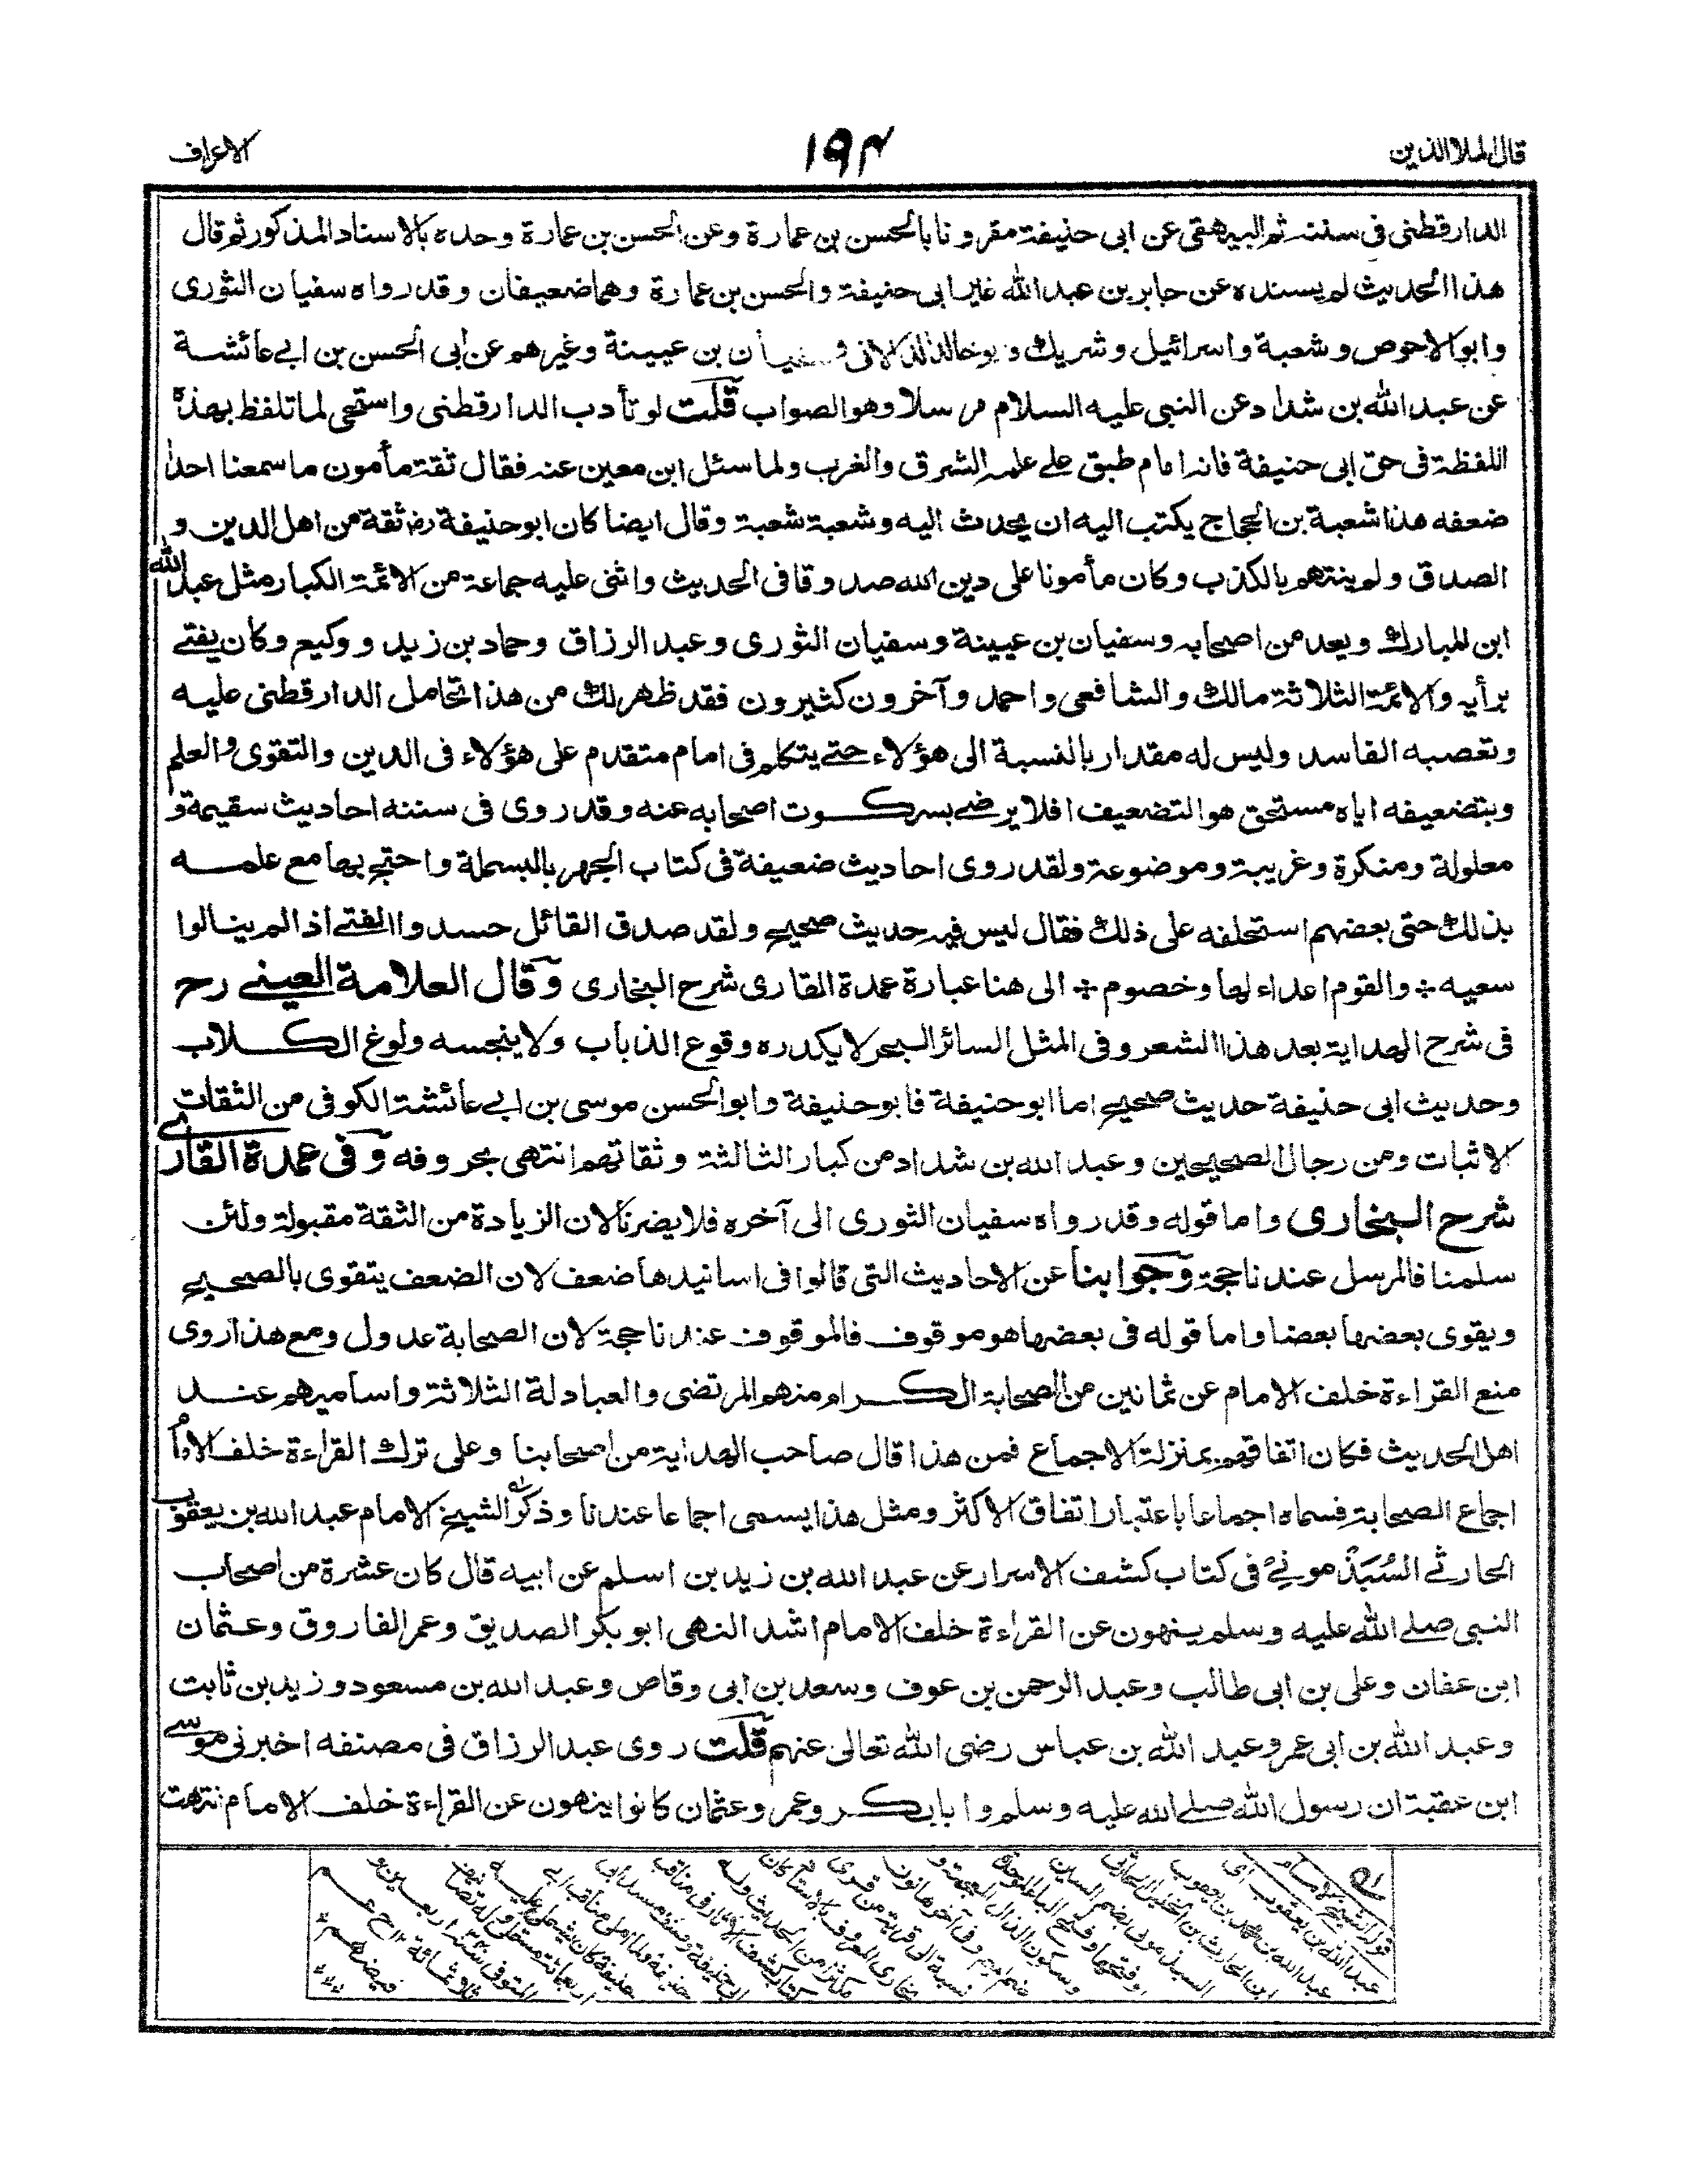 قال الملا الذين
١٩٤
الاعراف
الدارقطنى فى سننه ثم البيهقى عن ابى حنيفة مقرونا بالحسن بن عمارة وعن الحسن بن عمارة وحده بالاسناد المذكور ثم قال
هذا الحديث لم يسنده عن جابر بن عبد الله غير ابى حنيفة والحسن بن عمارة وهما ضعيفان وقد رواه سفيان الثورى
وابو الاحوص وشعبة واسرائيل وشريك وابو خالد الدالانى وسفيان بن عيينة وغيرهم عن ابى الحسن بن ابى عائشة
عن عبد الله بن شداد عن النبى عليه السلام مرسلا وهو الصواب قلت لو تأدب الدارقطنى واستحى لما تلفظ بهذه
اللفظة فى حق ابى حنيفة فانه امام طبق على علمه الشرق والغرب ولما سئل ابن معين عنه فقال ثقة مأمون ما سمعنا احدا
ضعفه هذا شعبة بن الحجاج يكتب اليه ان يحدث اليه وشعبة شعبة وقال ايضا كان ابو حنيفة رض ثقة من اهل الدين و
الصدق ولم يتهم بالكذب وكان مأمونا على دين الله صدوقا فى الحديث واثنى عليه جماعة من الائمة الكبار مثل عبد الله
ابن المبارك ويعد من اصحابه وسفيان بن عيينة وسفيان الثورى وعبد الرزاق وحماد بن زيد ووكيع وكان يفتى
برأيه والائمة الثلاثة مالك والشافعى واحمد وآخرون كثيرون فقد ظهر لك من هذا تحامل الدارقطنى عليه
وتعصبه الفاسد وليس له مقدار بالنسبة الى هؤلاء حتى يتكلم فى امام متقدم على هؤلاء فى الدين والتقوى والعلم
وبتضعيفه اياه مستحق هو التضعيف افلا يرضى بسكوت اصحابه عنه وقد روى فى سننه احاديث سقيمة و
معلولة ومنكرة وغريبة وموضوعة ولقد روى احاديث ضعيفة فى كتاب الجهر بالبسملة واحتج بها مع علمه
بذلك حتى بعضهم استحلفه على ذلك فقال ليس فيه حديث صحيح ولقد صدق القائل حسدوا الفتى اذ لم ينالوا
سعيه * والقوم اعداء لها وخصوم * الى هنا عبارة عمدة القارى شرح البخارى وقال العلامة العينى رح
فى شرح الهداية بعد هذا الشعر وفى المثل السائر البحر لا يكدره وقوع الذباب ولا ينجسه ولوغ الكلاب
وحديث ابى حنيفة حديث صحيح اما ابو حنيفة فابو حنيفة وابو الحسن موسى بن ابى عائشة الكوفى من الثقات
الاثبات ومن رجال الصحيحين وعبد الله بن شداد من كبار الثالثة وثقاتهم انتهى بحروفه وفى عمدة القارى
شرح البخارى واما قوله وقد رواه سفيان الثورى الى آخره فلا يضرنا لان الزيادة من الثقة مقبولة ولئن
سلمنا فالمرسل عندنا حجة وجوابنا عن الاحاديث التى قالوا فى اسانيدها ضعف لان الضعف يتقوى بالصحيح
ويقوى بعضها بعضا واما قوله فى بعضها هو موقوف فالموقوف عندنا حجة لان الصحابة عدول ومع هذا روى
منع القراءة خلف الامام عن ثمانين من الصحابة الكرام منهم المرتضى والعبادلة الثلاثة واساميهم عند
اهل الحديث فكان اتفاقهم بمنزلة الاجماع فمن هذا قال صاحب الهداية من اصحابنا وعلى ترك القراءة خلف الامام
اجماع الصحابة فسماه اجماعا باعتبار اتفاق الاكثر ومثل هذا يسمى اجماعا عندنا وذكر الشيخ الامام عبد الله بن يعقوب
الحارثى السُبَذمونى فى كتاب كشف الاسرار عن عبد الله بن زيد بن اسلم عن ابيه قال كان عشرة من اصحاب
النبى صلى الله عليه وسلم ينهون عن القراءة خلف الامام اشد النهى ابو بكر الصديق وعمر الفاروق وعثمان
ابن عفان وعلى بن ابى طالب وعبد الرحمن بن عوف وسعد بن ابى وقاص وعبد الله بن مسعود وزيد بن ثابت
وعبد الله بن ابى عمر وعبد الله بن عباس رضى الله تعالى عنهم قلت روى عبد الرزاق فى مصنفه اخبرنى موسى
ابن عقبة ان رسول الله صلى الله عليه وسلم وابا بكر وعمر وعثمان كانوا ينهون عن القراءة خلف الامام انتهت
قوله الشيخ الامام
عبد الله بن يعقوب اى
عبد الله بن محمد بن يعقوب
ابن الحارث بن الخليل الحارثى
السبذمونى بضم السين
او فتحها وفتح الباء الموحدة
وسكون الذال المعجمة و
ضم الميم وفى آخرها نون
نسبة الى قرية من قرى
بخارى المعروف بالاستاذ كان
مكثرا من الحديث وله
كتاب كشف الآثار فى مناقب
ابى حنيفة وصنف مسند ابى
حنيفة ولما املى مناقب ابى
حنيفة كان يستملى عليه
اربعمائة مستملى وله تصانيف
المتوفى سنة اربعين و
ثلاثمائة ١٢